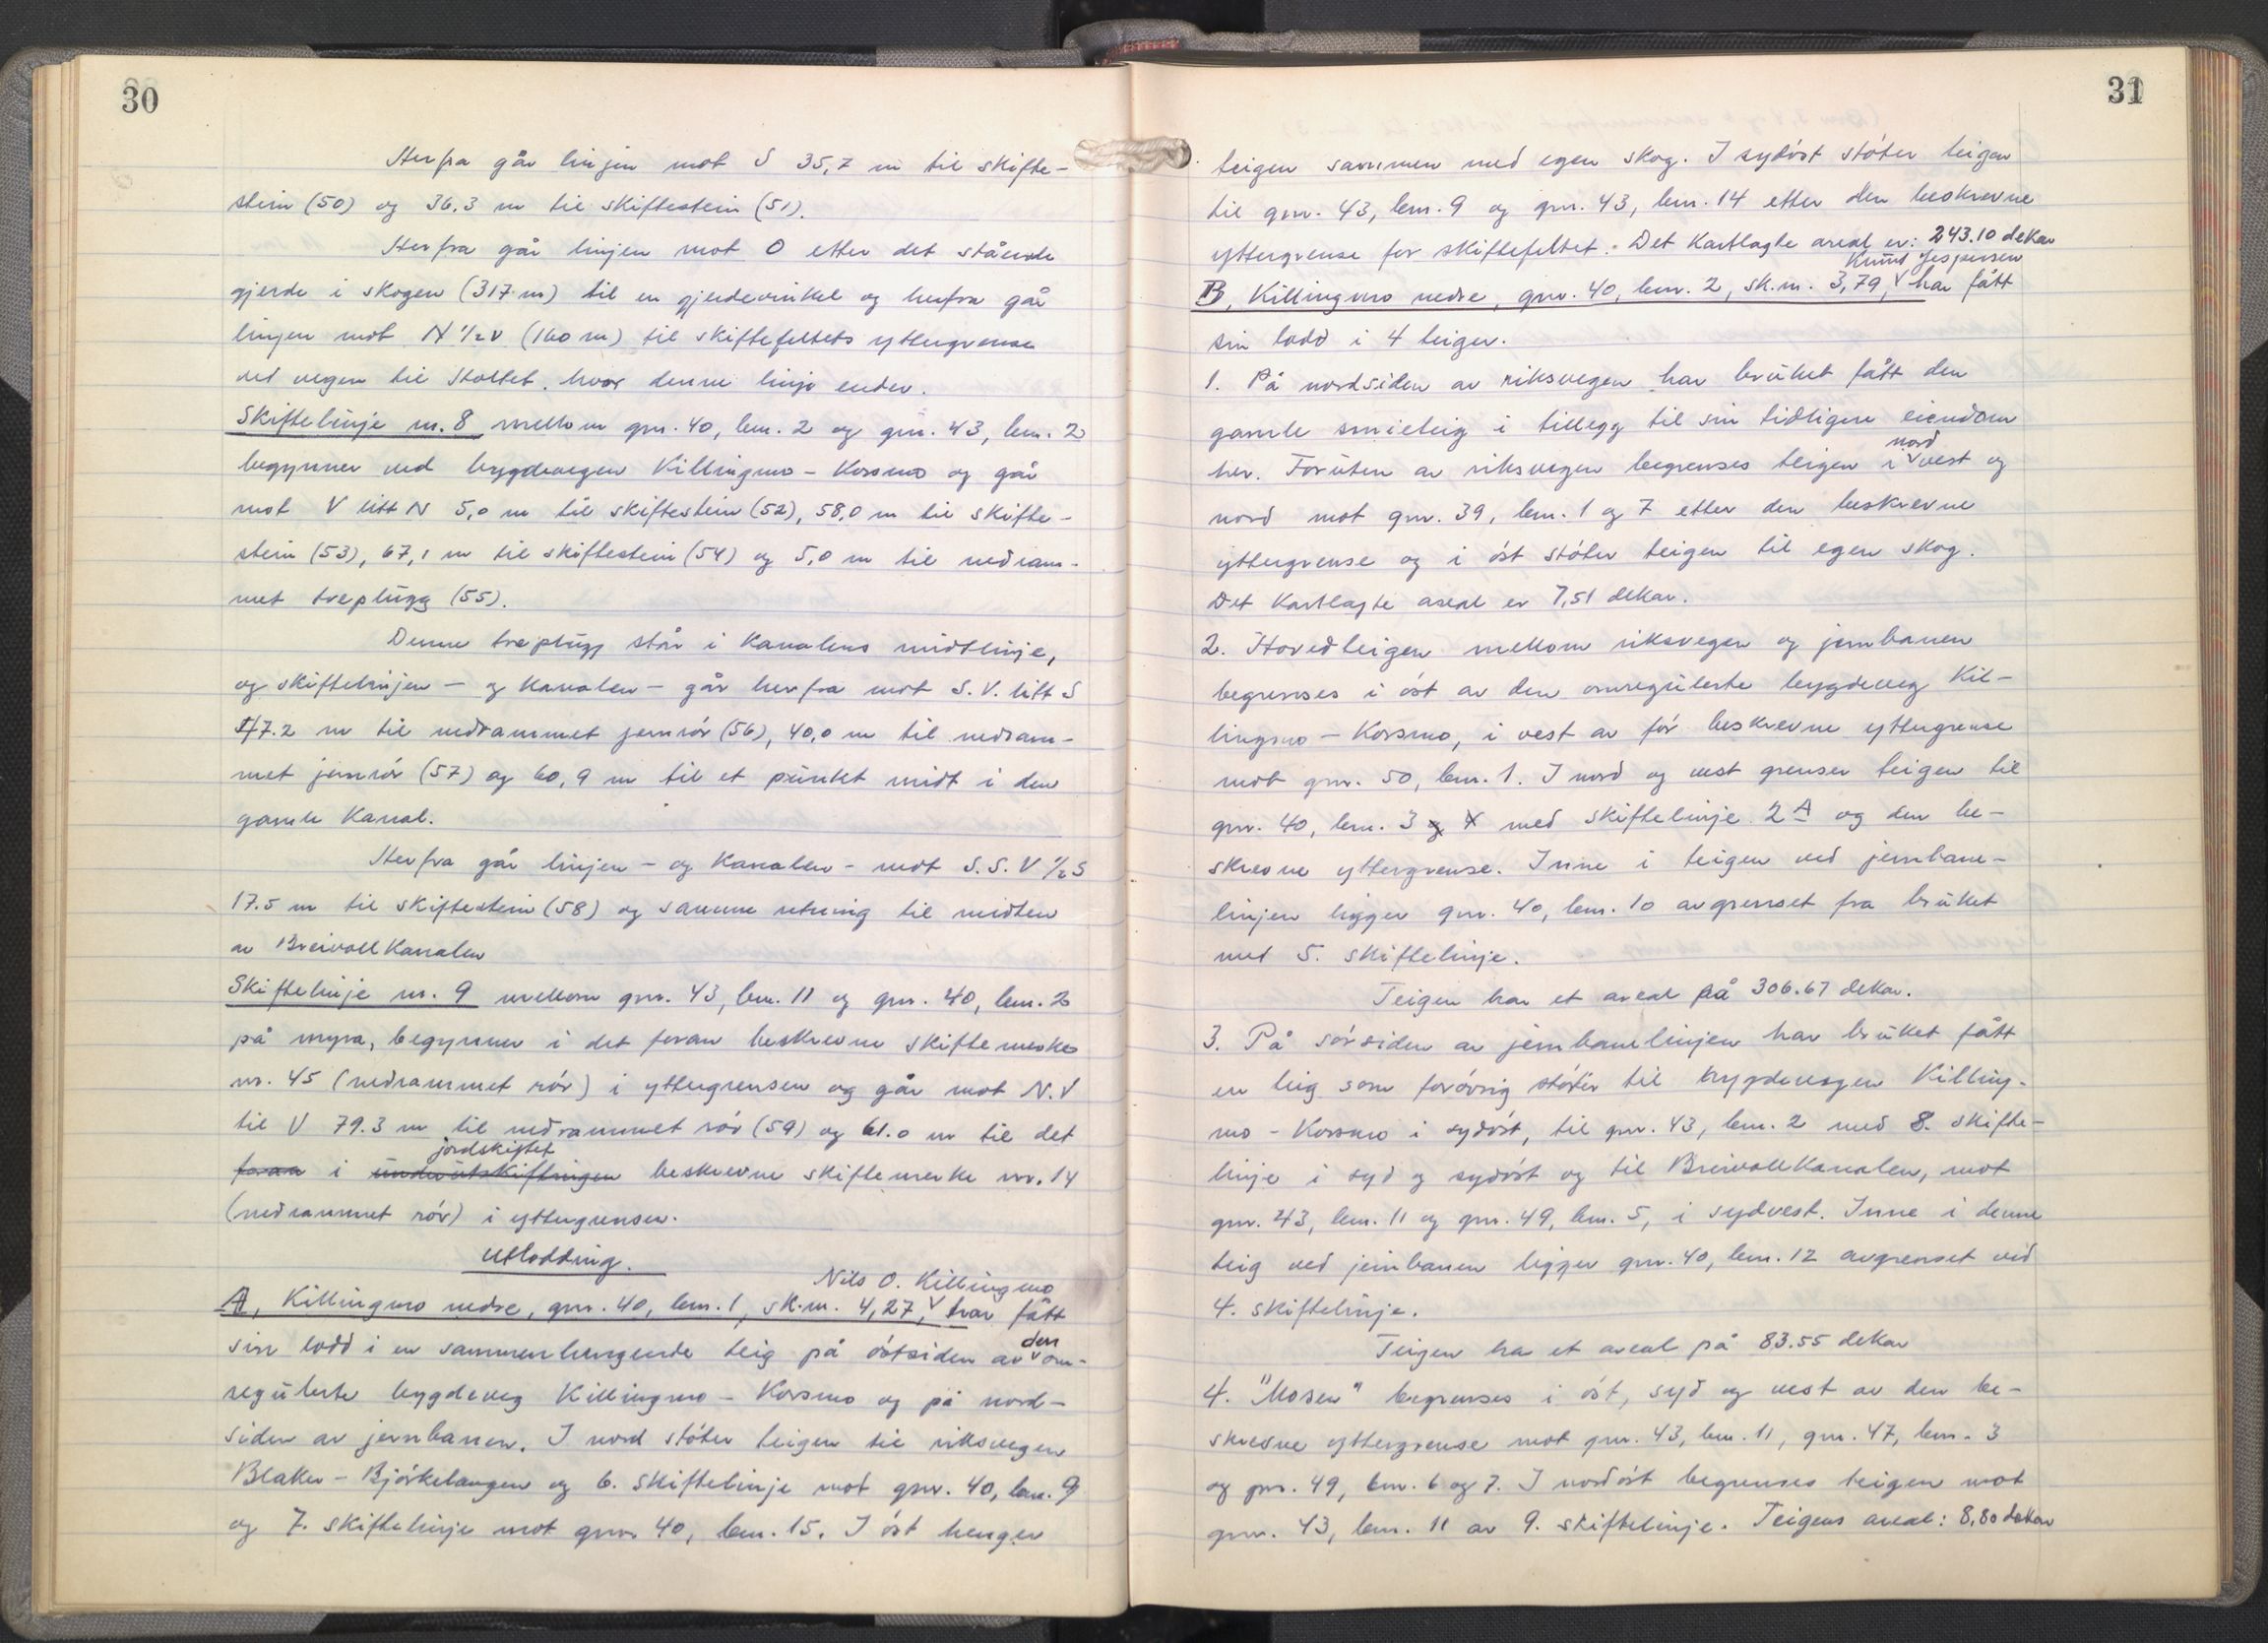 30
Herfra går linjen mot S 35,7 m til skifte-
stein (50) og 36.3 m til skiftestein (51).
Herfra går linjen mot O etter det stående
gjerde i skogen (317 m) til en gjerdevinkel og herfra går
linjen mot N ½ V (160 m) til skiftefeltets yttergrense
ved vegen til Stoltet. hvor denne linje ender.
Skiftelinje nr. 8 mellom gnr. 40, bnr. 2 og gnr. 43, bnr. 2
begynner ved bygdevegen Killingmo - Korsmo og går
mot V litt N 5,0 m til skiftestein (52), 58,0 m til skifte-
stein (53), 67,1 m til skiftestein (54) og 5,0 m til nedram-
met treplugg (55).
Denne treplugg står i kanalens midtlinje,
og skiftelinjen - og kanalen - går herfra mot S.V. litt S
47.2 m til nedrammet jernrör (56), 40,0 m til nedram-
met jernrör (57) og 60,9 m til et punktet midt i den
gamle kanal.
Herfra går linjen - og kanalen - mot S.S.V ½ S
17.5 m til skiftestein (58) og samme retning til midten
av Breivollkanalen
Skiftelinje nr. 9 mellom gnr. 43, bnr. 11 og gnr. 40, bnr. 2
på myra, begynner i det foran beskrevne skiftemerke
nr. 45 (nedrammet rör) i yttergrensen og går mot N.V
til V 79.3 m til nedrammet rör (59) og 61.0 m til det
jordskiftet
foran i underutskiftningen beskrevne skiftemerke nr. 14
(nedrammet rör) i yttergrensen.
Utlodding.
Nils O. Killingmo
A, Killingmo nedre, gnr. 40, bnr. 1, sk.m. 4,27, har fått
sin lodd i en sammenhengende teig på östsiden av den om-
regulerte bygdeveg Killingmo - Korsmo og på nord-
siden av jernbanen. I nord stöter teigen til riksvegen
Blaker - Bjørkelangen og 6. skiftelinje mot gnr. 40, bnr. 9
og 7. skiftelinje mot gnr. 40, bnr. 15. I öst henger
31
teigen sammen med egen skog. I sydöst stöter teigen
til gnr. 43, bnr. 9 og gnr. 43, bnr. 14 etter den beskrevne
yttergrense for skiftefeltet. Det kartlagte areal er: 243.10 dekar
Knut Jespersen
B, Killingmo nedre, gnr. 40, bnr. 2, sk.m. 3,79, har fått
sin lodd i 4 teiger.
1. På nordsiden av riksvegen har bruket fått den
gamle smieteig i tillegg til sin tidligere eiendom
her. Foruten av riksvegen begrenses teigen i nord vest og
nord mot gnr. 39, bnr. 1 og 7 etter den beskrevne
yttergrense og i öst stöter teigen til egen skog.
Det kartlagte areal er 7,51 dekar.
2. Hovedteigen mellom riksvegen og jernbanen
begrenses i öst av den omregulerte bygdeveg Kil-
lingmo - Korsmo, i vest av för beskrevne yttergrense
mot gnr. 50, bnr. 1. I nord og vest grenser teigen til
gnr. 40, bnr. 3 og 4 med skiftelinje 2 A og den be-
skrevne yttergrense. Inne i teigen ved jernbane-
linjen ligger gnr. 40, bnr. 10 avgrenset fra bruket
med 5. skiftelinje.
Teigen har et areal på 306.67 dekar.
3. På sörsiden av jernbanelinjen har bruket fått
en teig som forövrig stöter til bygdevegen Killing-
mo - Korsmo i sydöst, til gnr. 43, bnr. 2 med 8. skifte-
linje i syd og sydöst og til Breivollkanalen, mot
gnr. 43, bnr. 11 og gnr. 49, bnr. 5, i sydvest. Inne i denne
teig ved jernbanen ligger gnr. 40, bnr. 12 avgrenset ved
4. skiftelinje.
Teigen har et areal på 83.55 dekar
4. "Mosen" begrenses i öst, syd og vest av den be-
skrevne yttergrense mot gnr. 43, bnr. 11, gnr. 47, bnr. 3
og gnr. 49, bnr. 6 og 7. I nordöst begrenses teigen mot
gnr. 43, bnr. 11 av 9. skiftelinje. Teigens areal: 8,80 dekar